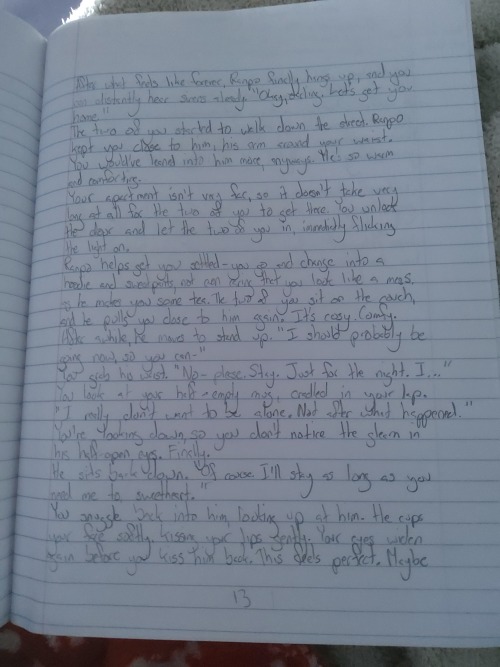 After what feels like forever, Ranpo finally hangs up, and you
can distantly hear sirens already. "Okay, darling. Let's get you
home."
The two of you started to walk down the street. Ranpo
kept you close to him, his arm around your waist.
You would've leaned into him more, anyways. He's so warm
and comforting.
Your apartment isn't very far, so it doesn't take very
long at all for the two of you to get there. You unlock
the door and let the two of you in, immediately flicking
the light on.
Ranpo helps get you settled - you go and change into a
hoodie and sweatpants, not even that you look like a mess,
as he makes you some tea. The two of you sit on the couch,
and he pulls you close to him again. It's cozy. Comfy.
After a while, he moves to stand up. "I should probably be
going now, so you can-"
You grab his wrist. "No- please. Stay. Just for the night. I..."
You look at your half-empty mug, cradled in your lap.
"I really don't want to be alone. Not after what happened."
You're looking down, so you don't notice the gleam in
his half-open eyes. Finally.
He sits back down. "Of course. I'll stay as long as you
need me to, sweetheart."
You snuggle back into him, looking up at him. He cups
your face softly, kissing your lips gently. Your eyes widen
again before you kiss him back. This feels perfect. Maybe
13